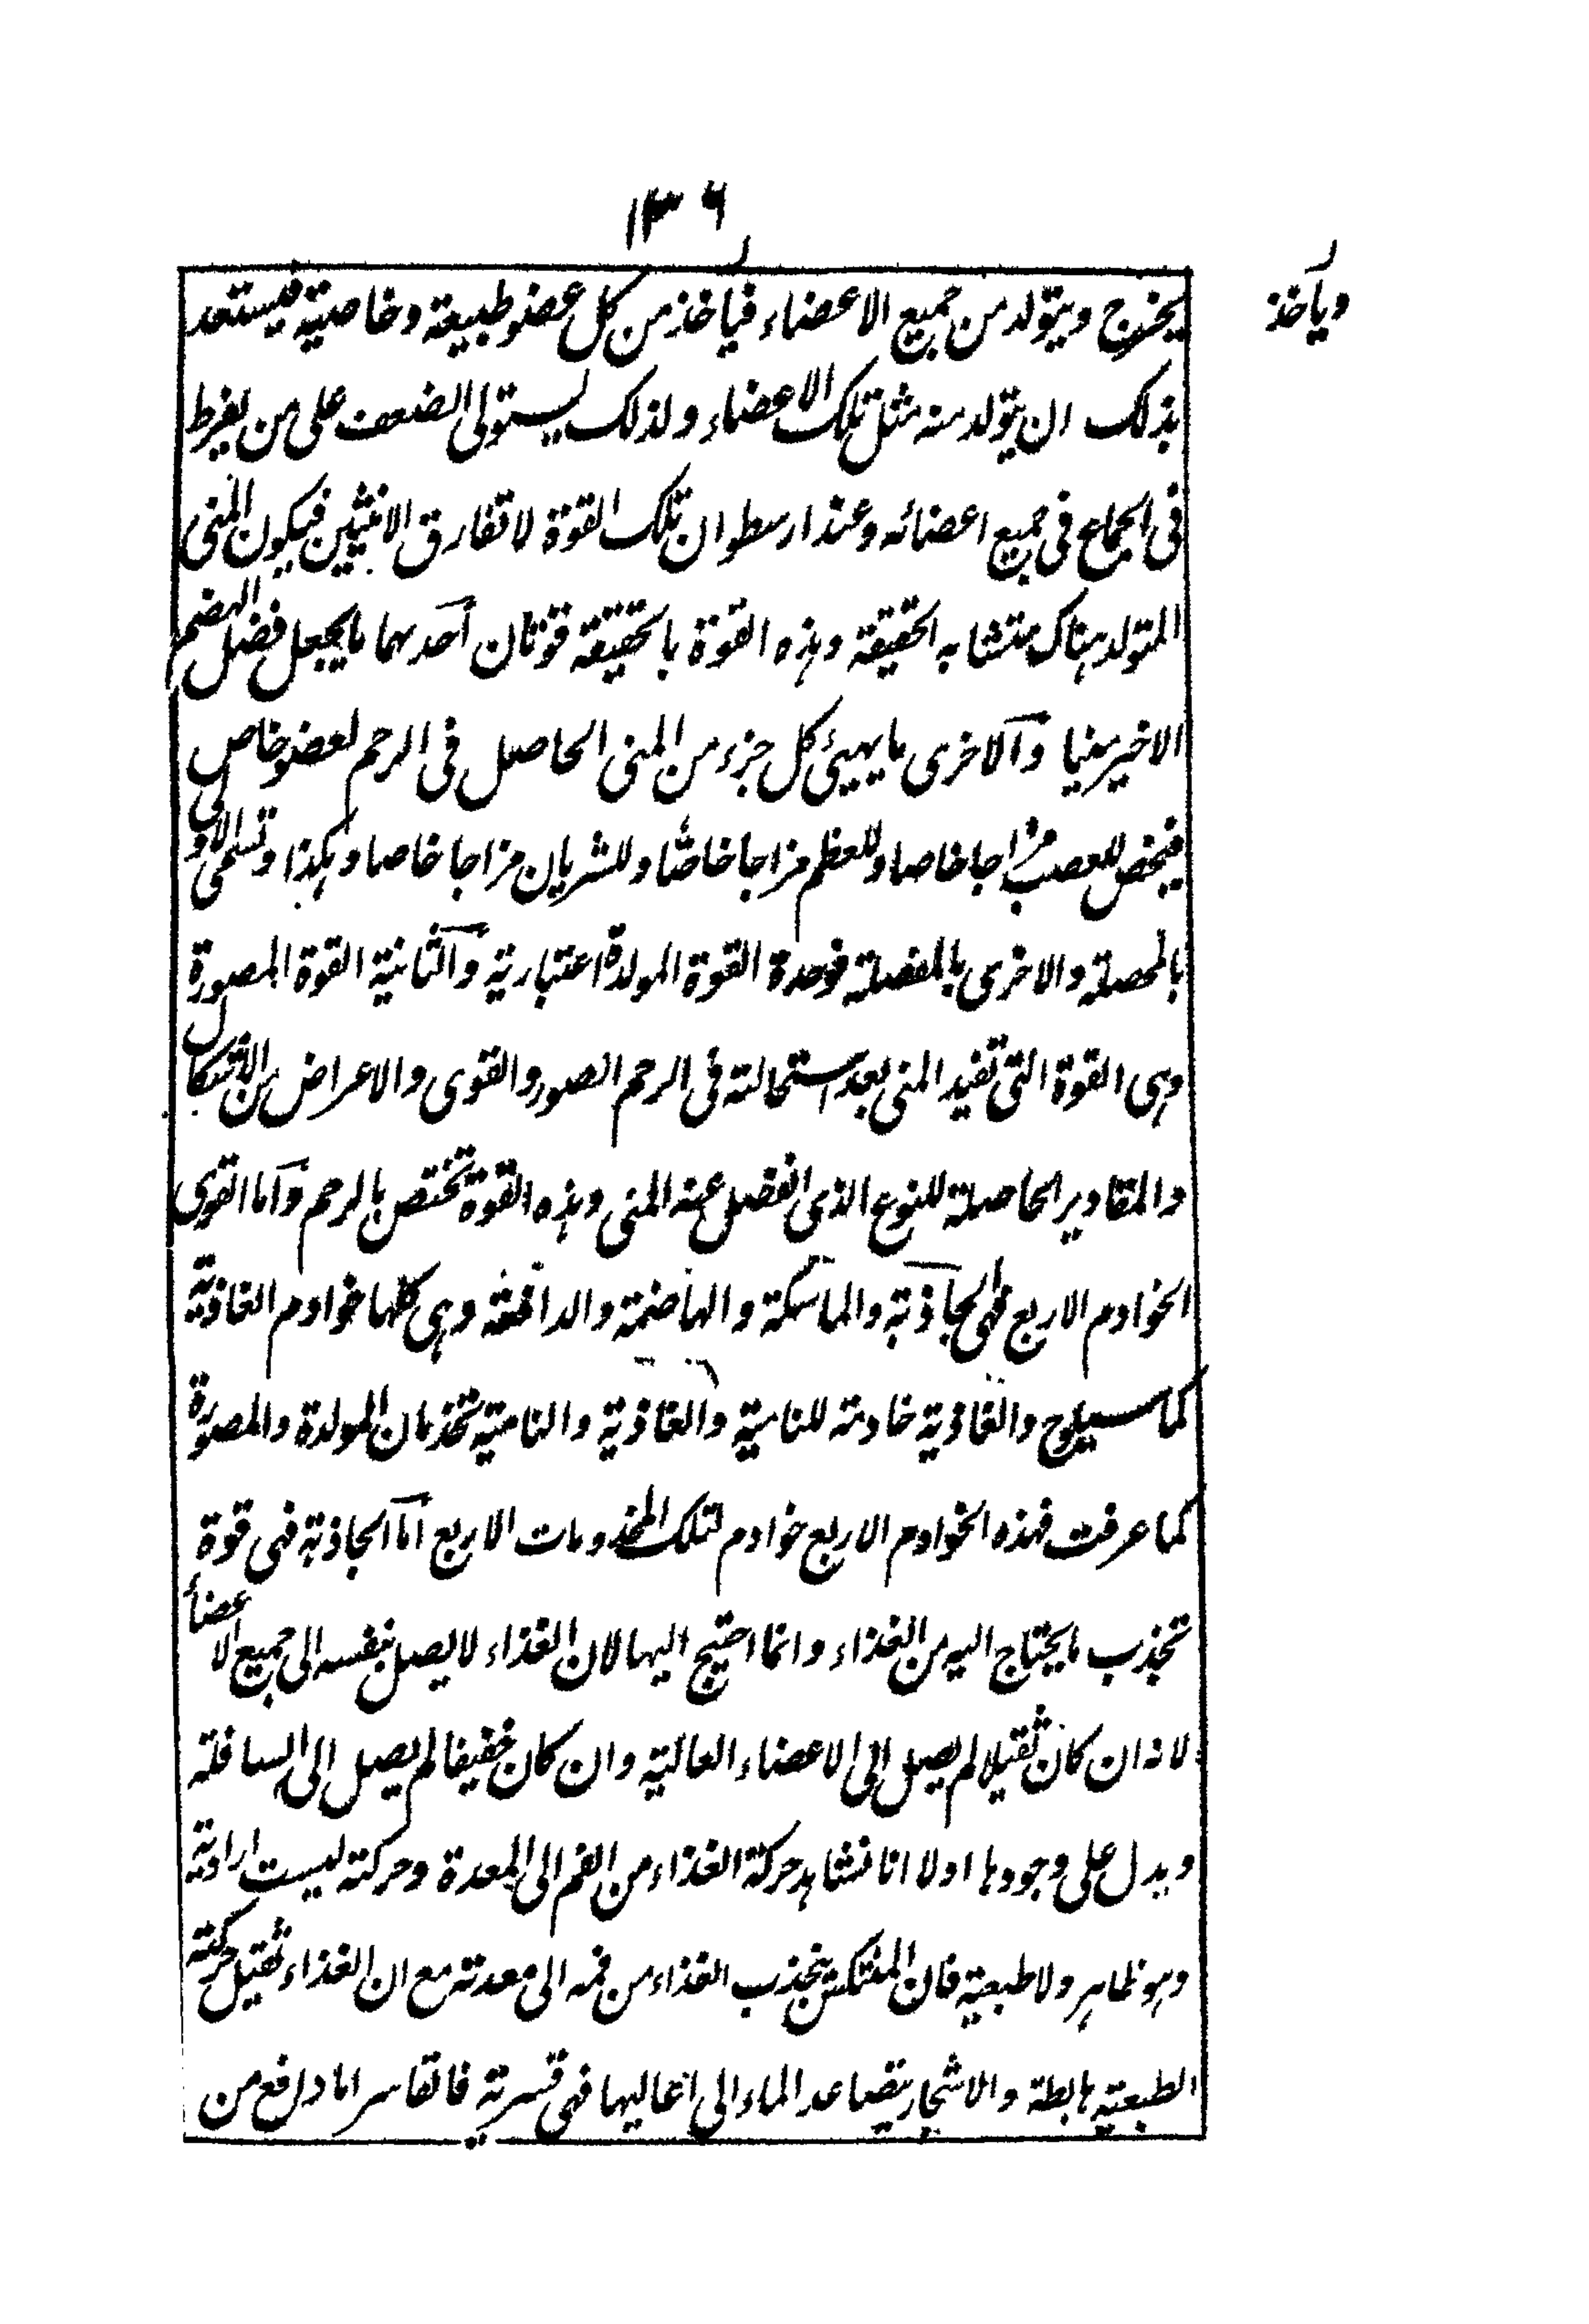 ١٣٦
وياخذ
يخرج ويتولد من جميع الاعضاء فياخذ من كل عضو طبيعة وخاصية فيستعد
بذلك ان يتولد منه مثل تلك الاعضاء ولذلك يستولى الضعف على من يفرط
فى الجماع فى جميع اعضائه وعند ارسطو ان تلك القوة لا تفارق الانثيين فيكون المنى
المتولد هناك متشابه الحقيقة وهذه القوة بالحقيقة قوتان احدهما ما يجعل فضل الهضم
الاخير منيا والاخرى ما يهيئ كل جزء من المنى الحاصل فى الرحم لعضو خاص
فيخص للعصب مزاجا خاصا وللعظم مزاجا خاصا وللشريان مزاجا خاصا وهكذا وتسمى الاولى
بالمحصلة والاخرى بالمفصلة فوحدة القوة المولدة اعتبارية والثانية القوة المصورة
وهى القوة التى تفيد المنى بعد استحالته فى الرحم الصور والقوى والاعراض من الاشكال
والمقادير الحاصلة للنوع الذى انفصل عنه المنى وهذه القوة تختص بالرحم واما القوى
الخوادم الاربع فهى الجاذبة والماسكة والهاضمة والدافعة وهى كلها خوادم الغاذية
كما سيلوح والغاذية خادمة للنامية والغاذية والنامية تخدمان المولدة والمصورة
كما عرفت فهذه الخوادم الاربع خوادم لتلك المخدومات الاربع اما الجاذبة فهى قوة
تجذب ما يحتاج اليه من الغذاء وانما احتيج اليها لان الغذاء لا يصل بنفسه الى جميع الاعضأ
لانه ان كان ثقيلا لم يصل الى الاعضاء العالية وان كان خفيفا لم يصل الى السافلة
ويدل على وجودها اولا انا نشاهد حركة الغذاء من الفم الى المعدة وحركته ليست ارادية
وهو ظاهر ولا طبعية فان المنتكس يجذب الغذاء من فمه الى معدته مع ان الغذاء ثقيل حركته
الطبعية هابطة والاشجار يتصاعد الماء الى اعاليها فهى قسرية فالقاسر اما دافع من